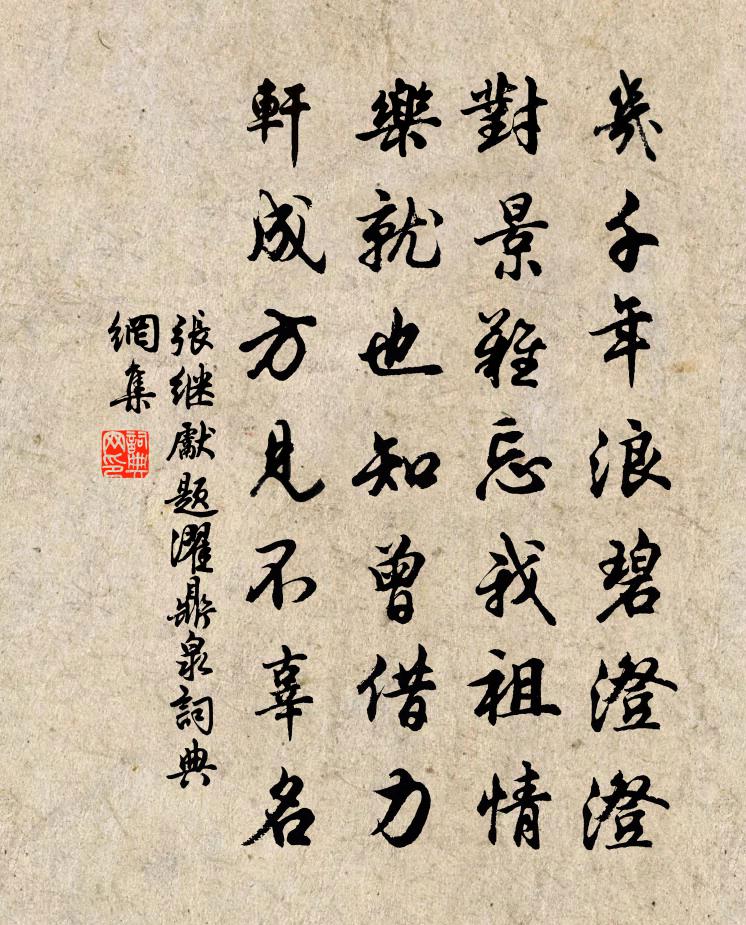 幾千年浪碧澄澄
對景難忘我祖情
樂就也知曾借力
軒成方見不辜名
張继獻題濯鼎泉詞典
網集
詞典網印